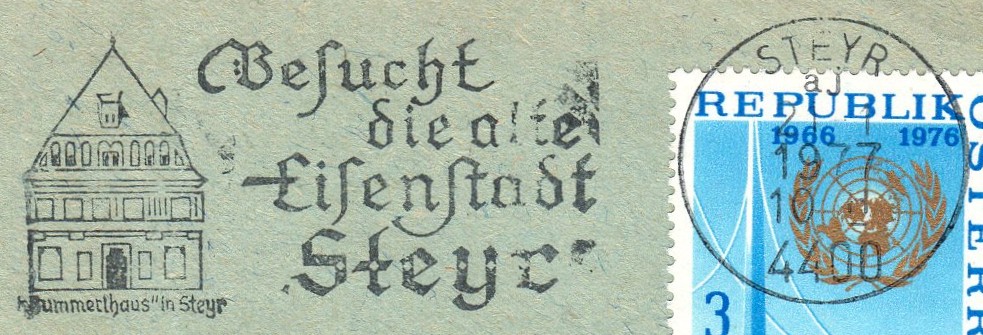 Besucht
die alte
Eisenstadt
Steyr
"Bummerlhaus" in Steyr
STEYR
aj
1977
4400
REPUBLIK ÖSTERR
1966 1976
3